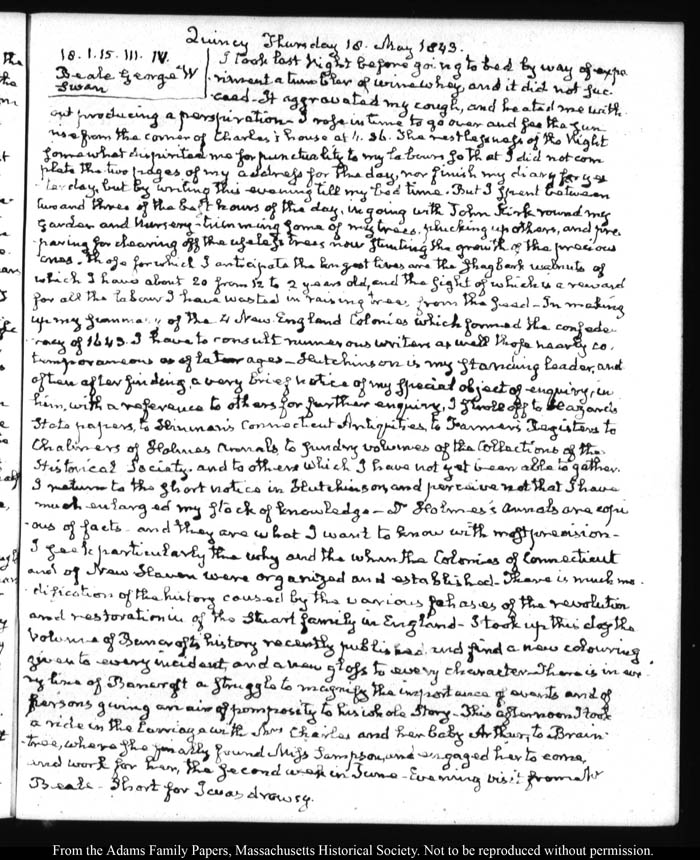 Quincy Thursday 18. May 1843.
18. I. 15. III. IV.
Beale George W
Swan
I took last Night before going to bed by way of expe-
riment a tumbler of wine whey, and it did not suc-
ceed. It aggravated my cough, and heated me with-
out producing a perspiration. I rose in time to go over and see the Sun
rise from the corner of Charles's house at 4. 36. The restlessness of the Night
somewhat dispirited me for punctuality to my labours so that I did not com-
plete the two pages of my address for the day, nor finish my diary for yes-
terday, but by writing this evening till my bed time. But I spent between
two and three of the best hours of the day, in going with John Kirk round my
Garden and Nursery trimming some of my trees, plucking up others, and pre-
paring for clearing off the useless trees now stunting the growth of the precious
ones. Those for which I anticipate the longest lives are the shagbark walnuts of
which I have about 20 from 12 to 2 years old, and the sight of which is a reward
for all the labour I have wasted in raising trees from the seed – In making
up my summary of the 4 New England Colonies which formed the confede-
racy of 1643. I have to consult numerous writers as well those nearly co-
temporaneous as of later ages – Hutchinson is my standing leader, and
often after finding a very brief notice of my special object of enquiry, in
him, with a reference to others for further enquiry, I strole off to Hazard's
State papers, to Trumbull's Connecticut Antiquities, to Farmer's Registers to
Chalmers to Holmes Annals to sundry volumes of the Collections of the
Historical Society. and to others which I have not yet been able to gather.
I return to the short notice in Hutchinson, and perceive not that I have
much enlarged my stock of knowledge – Dr Holmes's Annals are copi-
ous of facts – and they are what I want to know with most precision –
I seek particularly the why and the when the Colonies of Connecticut
and of New Haven were organized and established. There is much mo-
dification of the history caused by the various phases of the revolution
and restoration of the Stuart family in England – I took up this day the
volume of Bancroft's history recently published and find a new colouring
given to every incident, and a new gloss to every character. There is in eve-
ry line of Bancroft a struggle to magnify the importance of events and of
persons giving an air of pomposity to his whole Story – This afternoon I took
a ride in the Carriage with Mrs Charles and her baby Arthur, to Brain-
tree, where she finally found Miss Sampson, and engaged her to come,
and work for her, the second week in June – Evening visit from Mr
Beale – Short for I was drowsy.
From the Adams Family Papers, Massachusetts Historical Society. Not to be reproduced without permission.